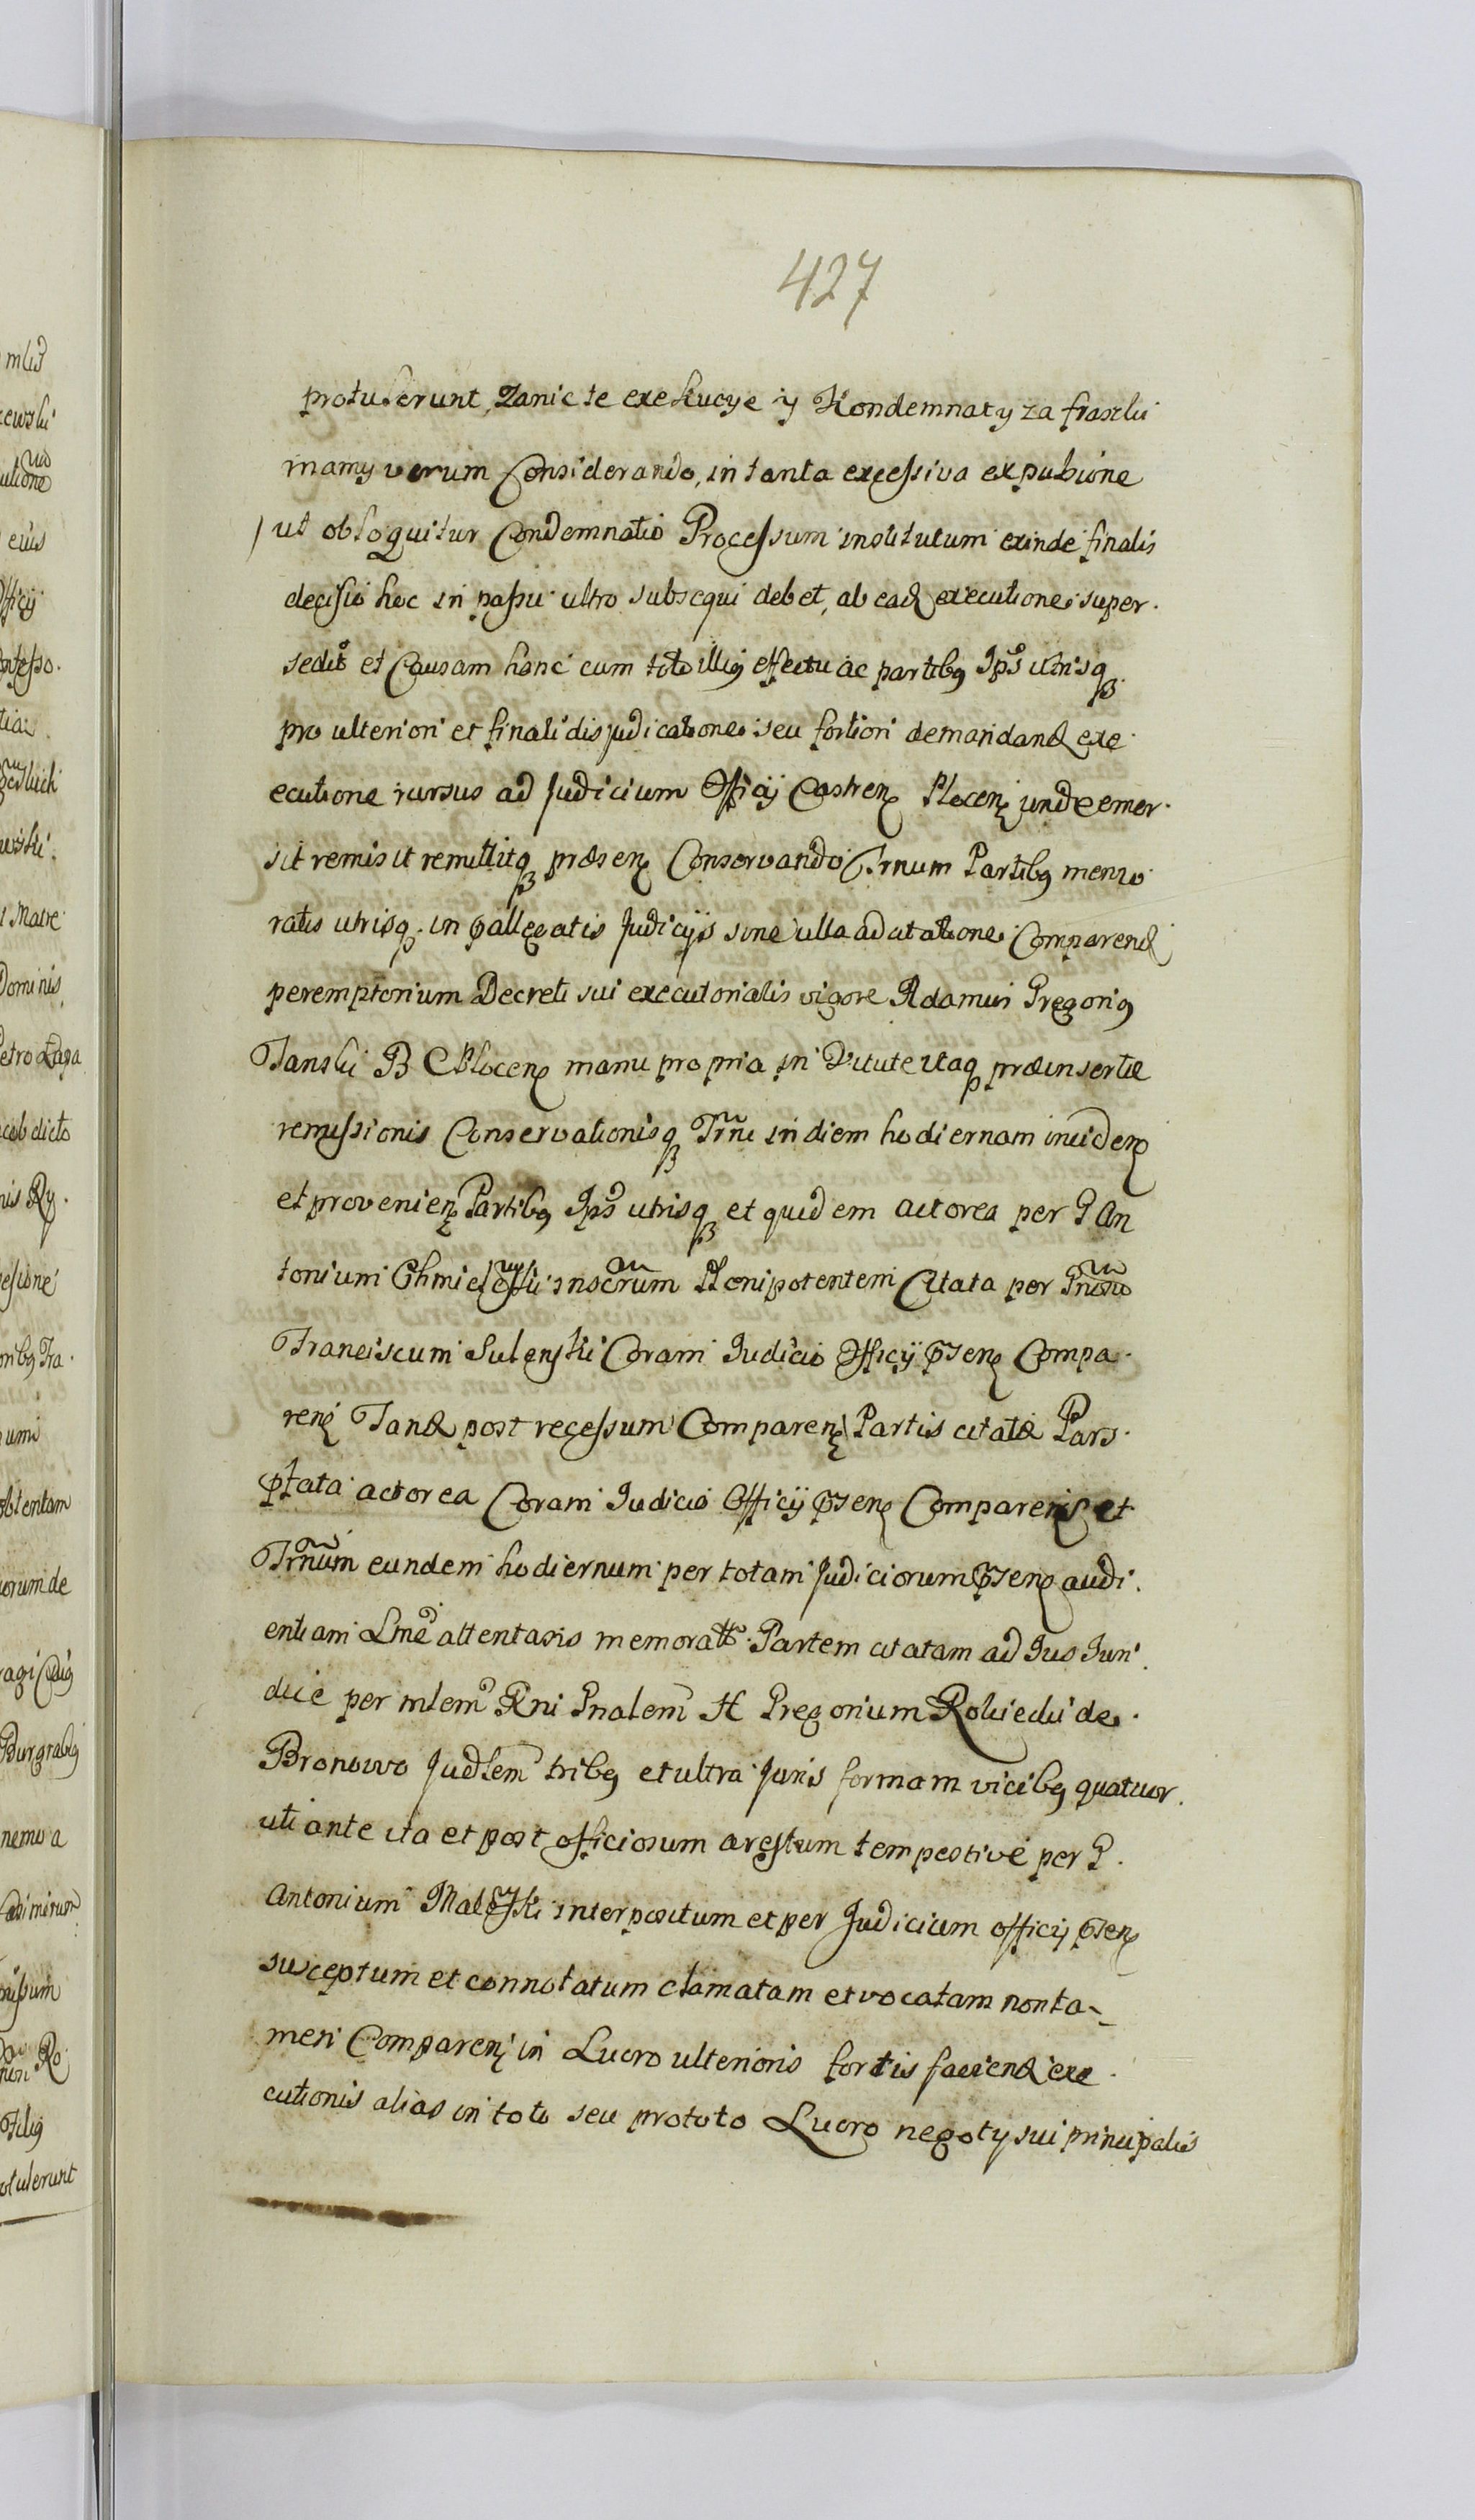 427
protulerunt, Za nic te exekucye y Kondemnaty za fraszki
mamy verum Considerando, in tanta excessiva expulsione
ut obloquitur Condemnatio Processum institutum exinde finalis
decisio hoc in passu ultro subsequi debet, ab eadē executione super.
sedit et Causam hanc cum toto illiq effectu ac partibq Ipš utrisq
pro ulteriori et finali disjudicatione seu fortiori demandanđ exe
ecutione rursus ad Judicium Officij Castrenȩ Plocenȩ unde emer.
sit remisit remittitq præsenȩ Conservando Trnum Partibq memo
ratis utrisq in pallegatis Judicijs sine ulla adcitatione Comparenđ
peremptorium Decreti sui executorialis vigore Adamus Gregoriq
Tanski B C Plocenȩ manu propria in Virtute itaq præinsertæ
remissionis Conservationisq Trñi in diem hodiernam incidenȩ
et provenienȩ Partibq Ipš utrisq et quidem actorea per G An
tonium Chmielewski inscrum Plenipotentem Citata per Gnosũ
Franciscum Sulenski Coram Judicio Officij p̄senȩ Compa.
renȩ Tandē post recessum Comparenȩ Partis citatæ Pars
p̄fata actorea Coram Judicio Officij p̄senȩ Comparens et
Trñum eundem hodiernum per totam Judiciorum p̄senȩ audi.
entiam Lmē attentans memoratt Partem citatam ad Jus Juri
dice per mlem Rni Gnalem H Gregorium Rokicki de
Bronowo Judlem tribq et ultra Juris formam vicibq quatuor.
uti ante ita et post officiosum arestum tempestive per G.
Antonium interpositum et per Judicium officij p̄senȩ
susceptum et connotatum clamatam et vocatam non ta-
men Comparenȩ in Lucro ulterioris fortis faciendē exe
cutionis alias in toto seu pro toto Lucro negoty sui principalis